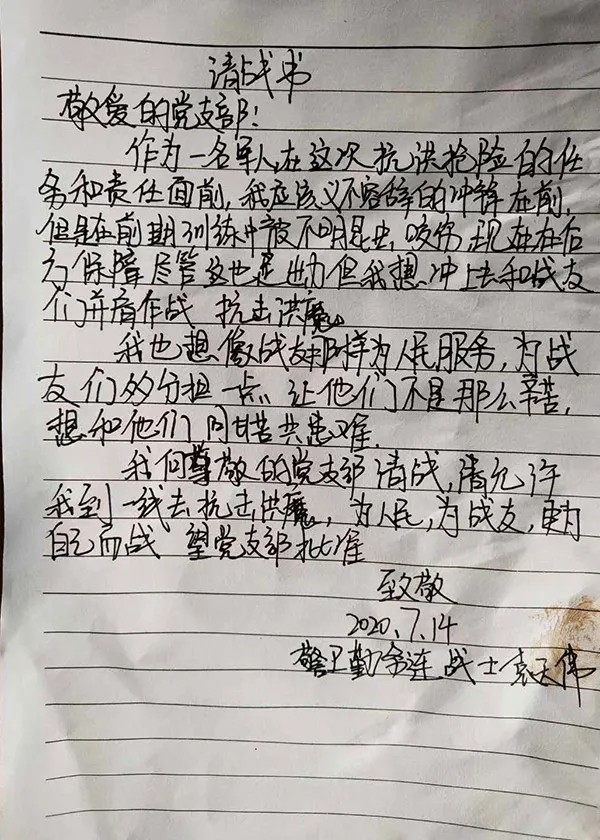 请战书
敬爱的党支部!
作为一名军人,在这次抗洪抢险的任
务和责任面前,我应该义不容辞的冲锋在前,
但是在前期训练中被不明昆虫咬伤 现在在后
方保障尽管这也是出力但我想冲上去和战友
们并肩作战 抗击洪魔。
我也想像战友那样为人民服务,为战
友们多分担一点 让他们不是那么辛苦,
想和他们同甘苦共患难.
我向尊敬的党支部请战,请允许
我到一线去抗击洪魔,为人民,为战友,更为
自己而战 望党支部批准
致敬
2020.7.14
警卫勤务连 战士袁天伟